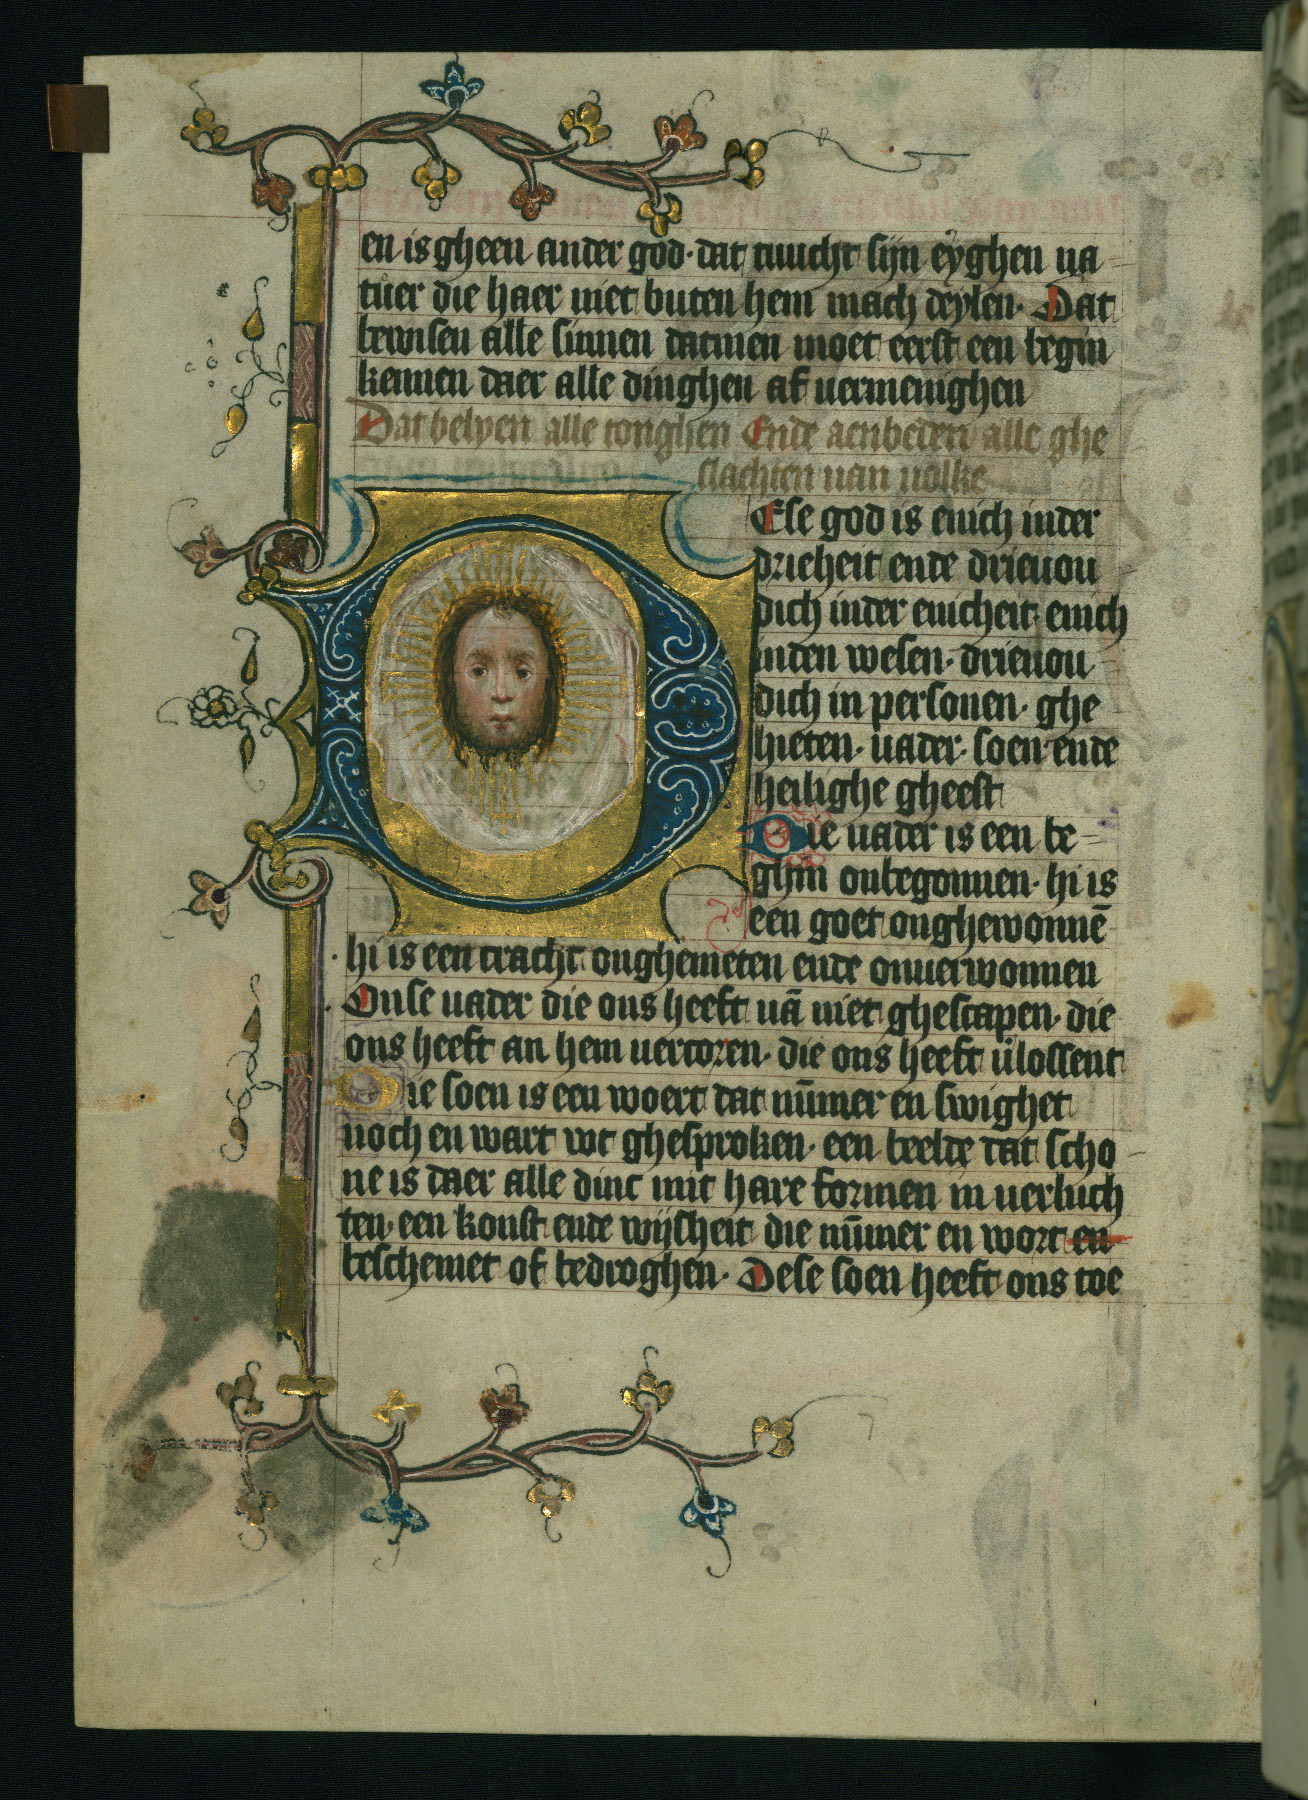 en is gheen ander god· dat tuucht sijn eyghen na
tuer die haer niet buten hem mach deylen· Dat
bewisen alle sinnen datmen moet eerst een begin
kennen daer alle dinghen af vermenighen
Dat belyen alle tonghen Ende aenbeden alle ghe
slachten van volke
Ese god is enich inder
drieheit ende drieuou
dich inder enicheit enich
inden wesen· drieuou
dich in personen· ghe
hieten· vader· soen ende
heilighe gheest
Die vader is een be
ghin onbegonnen· hi is
een goet onghewonnē
hi is een cracht onghemeten ende onuerwonnen
Onse vader die ons heeft vā niet ghescapen· die
ons heeft an hem vercoren· die ons heeft v̄lossent
Die soen is een woert dat nūmer en swighet
noch en wart wt ghesproken· een beelde dat scho
ne is daer alle dinc mit hare formen in verluch
ten· een konst ende wijsheit die nūmer en wort en
beschemet of bedroghen· Dese soen heeft ons toe